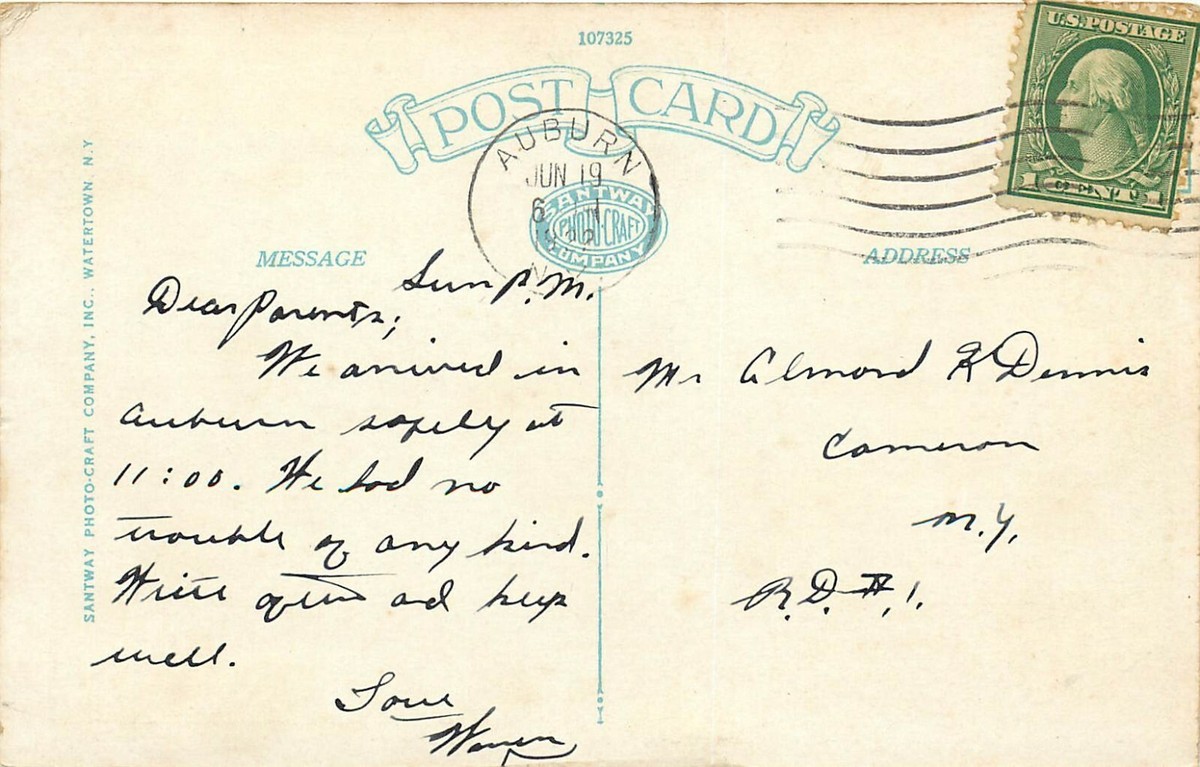 107325
U.S. POSTAGE
POST CARD
AUBURN
JUN 19
6
N
1 CENT 1
SANTWAY
PHOTO-CRAFT
COMPANY
MESSAGE
ADDRESS
SANTWAY PHOTO-CRAFT COMPANY, INC., WATERTOWN N.Y
Sun P.M.
Dear Parents;
We arrived in
Auburn safely at
11:00. We had no
trouble of any kind.
Write often and keep
well.
Love
Warren
Mr Almond K Dennis
Cameron
N.Y.
R.D. #1.